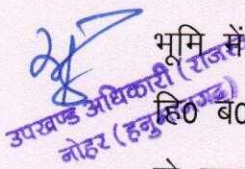 भूमि में
हि0 ब0
उपखण्ड अधिकारी (राजस्व)
नोहर (हनुमानगढ़)